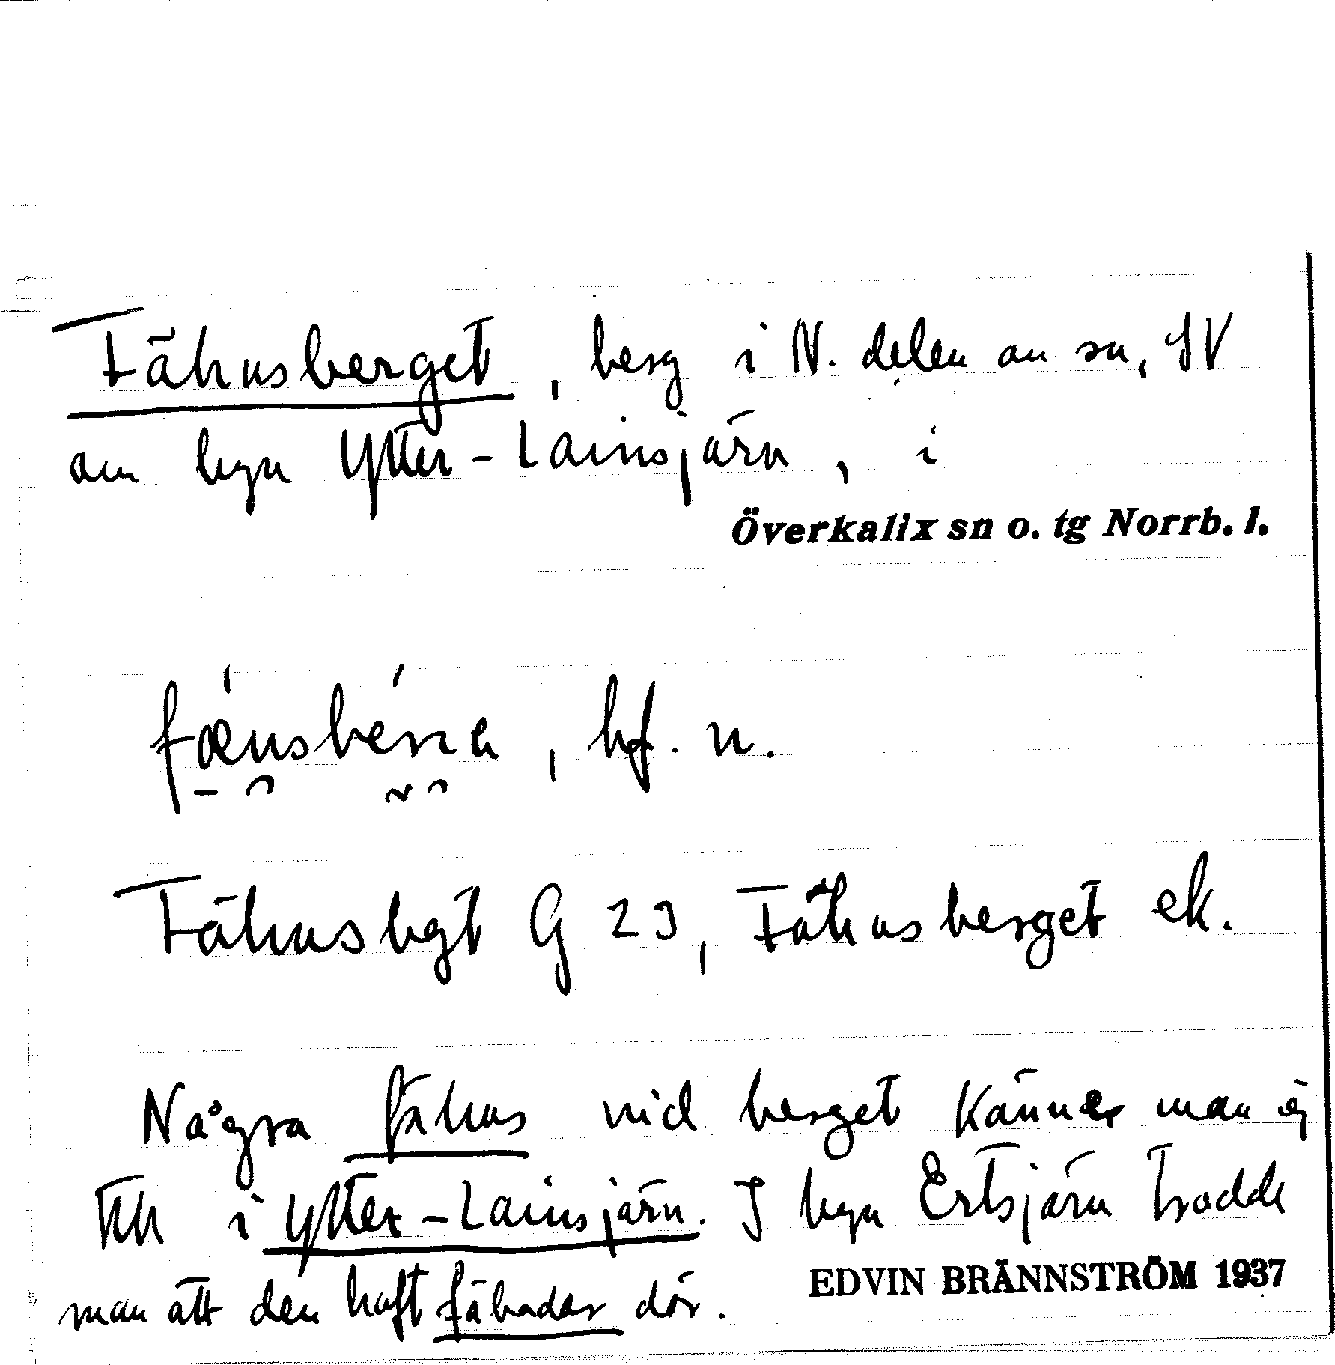 Fähusberget, berg i N. delen av sn, SV
om byn Ytter-Lainsjärv, i
Överkalix sn o. tg Norrb. l.
fǽnsbérra, bf. n.
Fähusbgt G 23, Fähusberget ek.
Några fähus vid berget känner man ej
till i Ytter-Lainsjärv. I byn Ertsjärv trodde
man att den haft fäbodar där.
EDVIN BRÄNNSTRÖM 1937